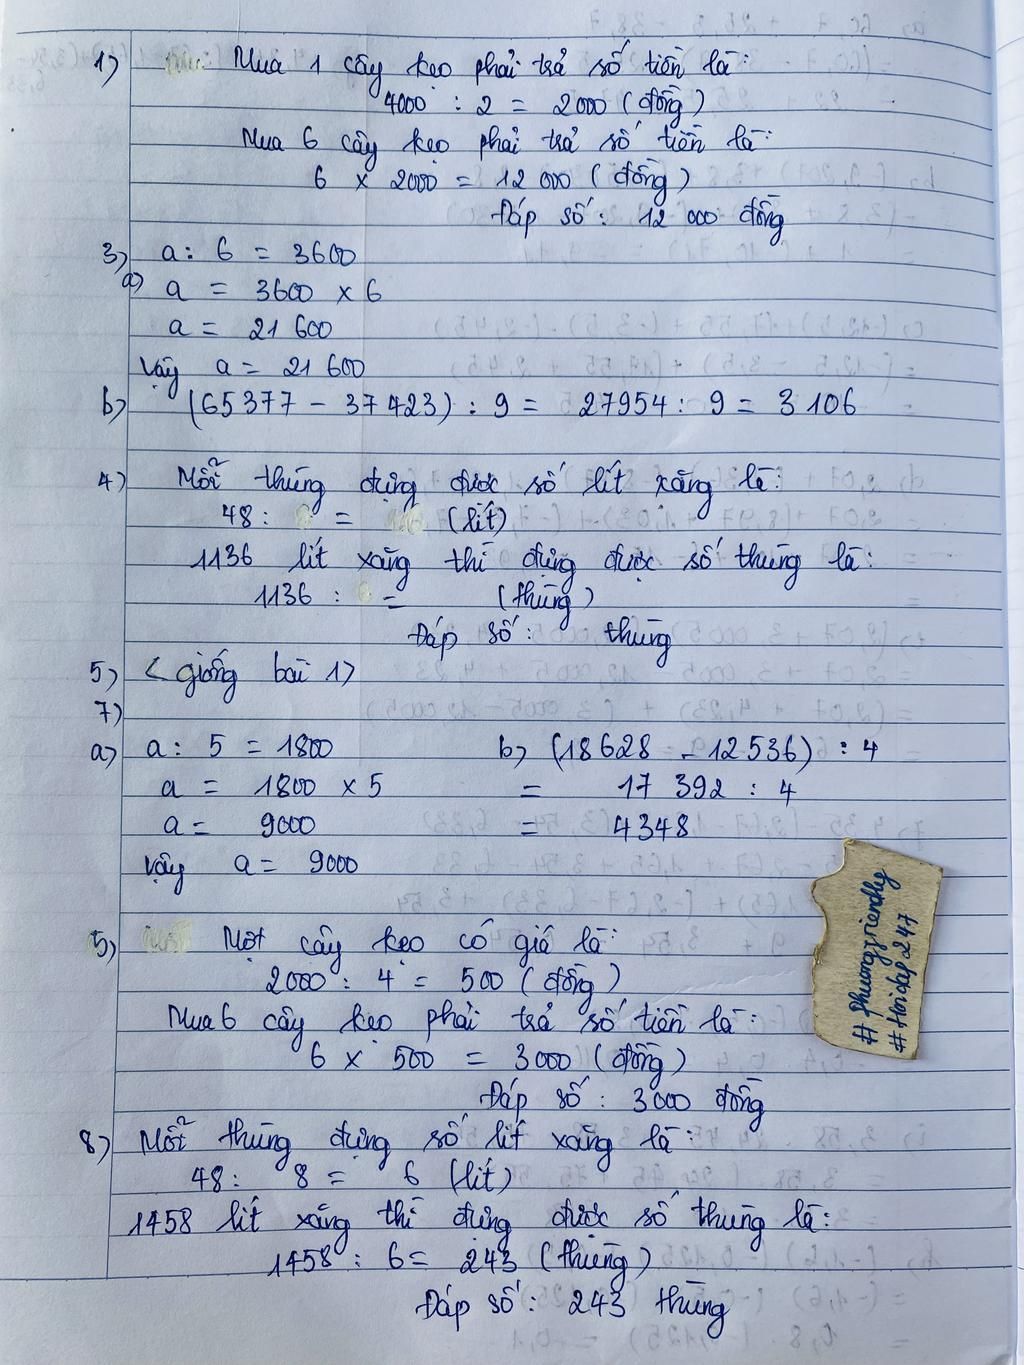 1) Mua 1 cây kẹo phải trả số tiền là:
4000 : 2 = 2000 (đồng)
Mua 6 cây kẹo phải trả số tiền là:
6 x 2000 = 12 000 (đồng)
Đáp số: 12 000 đồng
3) a : 6 = 3600
a) a = 3600 x 6
a = 21 600
Vậy a = 21 600
b) (65377 - 37423) : 9 = 27954 : 9 = 3106
4) Mỗi thùng đựng được số lít xăng là:
48 : = (lít)
1136 lít xăng thì đựng được số thùng là:
1136 : = (thùng)
Đáp số: thùng
5) < giống bài 1>
7)
a) a : 5 = 1800 b) (18628 - 12536) : 4
a = 1800 x 5 = 17 392 : 4
a = 9000 = 4348
Vậy a = 9000
5) Một cây kẹo có giá là:
2000 : 4 = 500 (đồng)
Mua 6 cây kẹo phải trả số tiền là:
6 x 500 = 3000 (đồng)
Đáp số: 3000 đồng
8) Mỗi thùng đựng số lít xăng là:
48 : 8 = 6 (lít)
1458 lít xăng thì đựng được số thùng là:
1458 : 6 = 243 (thùng)
Đáp số: 243 thùng
# phuongfriendly
# Hoidap247